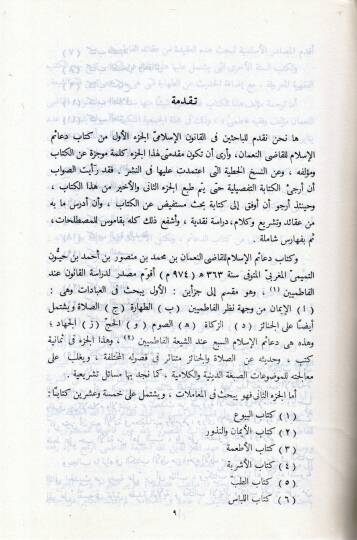 تقدمة
ها نحن نقدم للباحثين فى القانون الإسلامى الجزء الأول من كتاب دعائم
الإسلام للقاضى النعمان، وأرى أن تكون مقدمتى لهذا الجزء كلمة موجزة عن الكتاب
ومؤلفه ، وعن النسخ الخطية التى اعتمدت عليها فى النشر . فقد رأيت الصواب
أن أرجئ الكتابة التفصيلية حتى يتم طبع الجزء الثانى والأخير من هذا الكتاب ،
وحينئذ أرجو أن أوفق إلى كتابة بحث مستفيض عن الكتاب ، وأن أدرس ما به
من عقائد وتشريع وكلام، دراسة نقدية ، وأشفع ذلك كله بقاموس للمصطلحات،
ثم بفهارس شاملة .
وكتاب دعائم الإسلام للقاضى النعمان بن محمد بن منصور بن أحمد بن حيُّون
التميمىّ المغربىّ المتوفى سنة ٣٦٣ هـ (٩٧٤ م) أقوم مصدر لدراسة القانون عند
الفاطميين (١) ، وهو مقسم إلى جزأين : الأول يبحث فى العبادات وهى :
(ا) الإيمان من وجهة نظر الفاطميين (ب) الطهارة (ج) الصلاة ويشتمل
أيضاً على الجنائز (د) الزكاة (ه) الصوم (و) الحجّ (ز) الجهاد ؛
وهذه هى دعائم الإسلام السبع عند الشيعة الفاطميين (٢) ، وهذا الجزء فى ثمانية
كتب ، وحديثه عن الصلاة والجنائز متناثر فى فصوله المختلفة ، ويغلب على
معالجته للموضوعات الصبغة الدينية والكلامية ، كما نجد بها مسائل تشريعية .
أما الجزء الثانى فهو يبحث فى المعاملات ، ويشتمل على خمسة وعشرين كتاباً:
(١) كتاب البيوع
(٢) كتاب الأيمان والنذور
(٣) كتاب الأطعمة
(٤) كتاب الأشربة
(٥) كتاب الطبّ
(٦) كتاب اللباس
٩